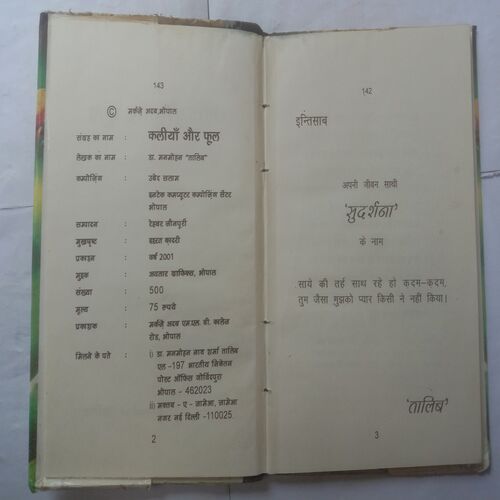 143
© मर्कज़े अदब,भोपाल
संग्रह का नाम : कलीयाँ और फूल
लेखक का नाम : डा. मनमोहन "तालिब"
कम्पोज़िंग : उबेद सलाम
इनटेक कम्प्यूटर कम्पोज़िंग सेंटर
भोपाल
सम्पादन : रेहबर जौनपूरी
मुखपृष्ट : इशरत क़ादरी
प्रकाशन : वर्ष 2001
मुद्रक : अवतार ग्राफिक्स, भोपाल
संख्या : 500
मूल्य : 75 रूपये
प्रकाशक : मर्कज़े अदब एम.एल. बी. कालेज
रोड, भोपाल
मिलने के पते : i) डा. मनमोहन नाथ शर्मा तालिब
एल -197 भारतीय निकेतन
पोस्ट ऑफिस गोविंदपुरा
भोपाल - 462023
ii) मक्तब - ए - जामेआ, जामेआ
नगर नई दिल्ली -110025
2
142
इन्तिसाब
अपनी जीवन साथी
'सुदर्शना'
के नाम
साये की तर्ह साथ रहे हो क़दम-क़दम,
तुम जैसा मुझको प्यार किसी ने नहीं किया।
'तालिब'
3